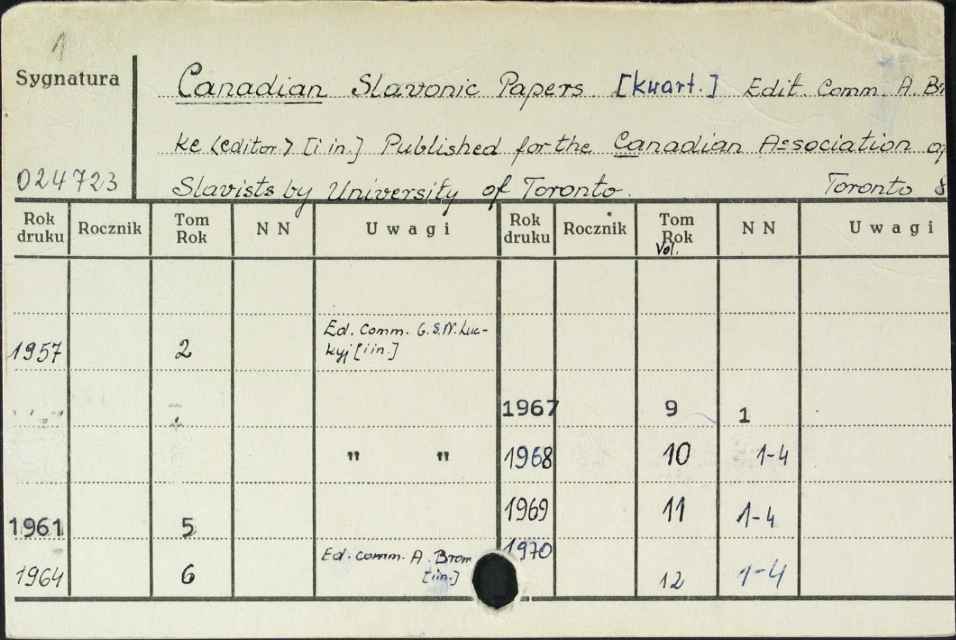 1
Sygnatura
Canadian Slavonic Papers [kwart.] Edit. Comm. A. Br
ke <editor> [i in.] Published for the Canadian Association of
024723
Slavists by University of Toronto. Toronto &
Rok druku Rocznik Tom Rok N N Uwagi Rok druku Rocznik Tom Rok Vol. N N Uwagi
1957 2 Ed. Comm. G.S.N. Luc-
kyj [i in.]
1967 9 1
" " 1968 10 1-4
1961 5 1969 11 1-4
1964 6 Ed. comm. A. Brom
[i in.] 1970 12 1-4